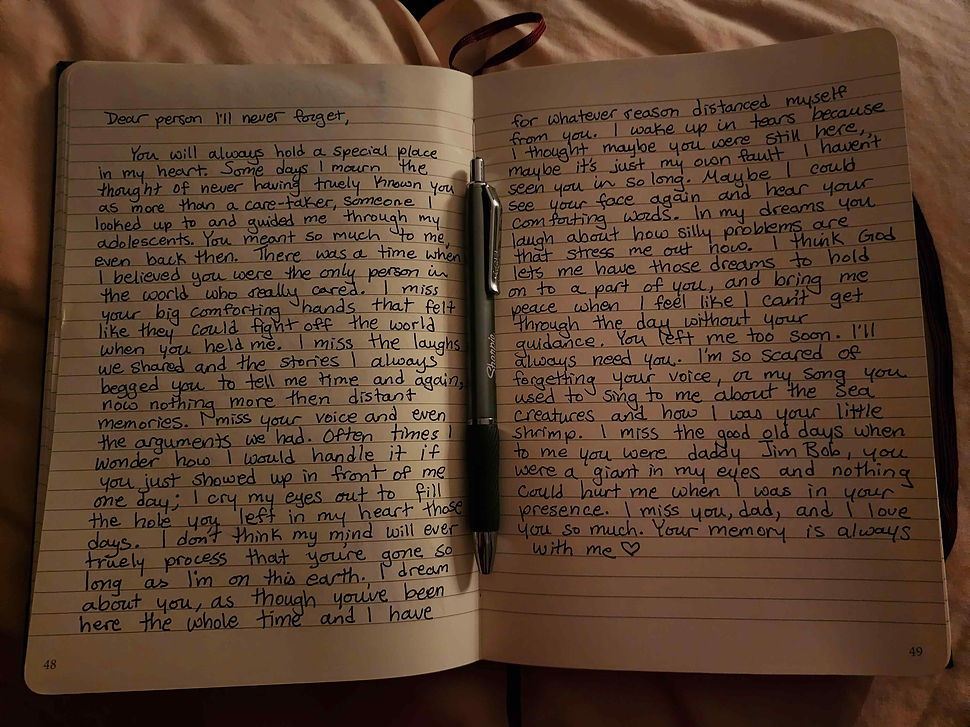 Dear person I'll never forget,
You will always hold a special place
in my heart. Some days I mourn the
thought of never having truely known you
as more than a care-taker, someone I
looked up to and guided me through my
adolescents. You meant so much to me,
even back then. There was a time when
I believed you were the only person in
the world who really cared. I miss
your big comforting hands that felt
like they could fight off the world
when you held me. I miss the laughs
we shared and the stories I always
begged you to tell me time and again,
now nothing more then distant
memories. I miss your voice and even
the arguments we had. Often times I
wonder how I would handle it if
you just showed up in front of me
one day; I cry my eyes out to fill
the hole you left in my heart those
days. I don't think my mind will ever
truely process that you're gone so
long as I'm on this earth. I dream
about you, as though you've been
here the whole time and I have
48
for whatever reason distanced myself
from you. I wake up in tears because
I thought maybe you were still here,
maybe it's just my own fault I haven't
seen you in so long. Maybe I could
see your face again and hear your
comforting words. In my dreams you
laugh about how silly problems are
that stress me out now. I think God
lets me have those dreams to hold
on to a part of you, and bring me
peace when I feel like I can't get
through the day without your
guidance. You left me too soon. I'll
always need you. I'm so scared of
forgetting your voice, or my song you
used to sing to me about the sea
creatures and how I was your little
shrimp. I miss the good old days when
to me you were daddy Jim Bob, you
were a giant in my eyes and nothing
could hurt me when I was in your
presence. I miss you, dad, and I love
you so much. Your memory is always
with me ♡
49